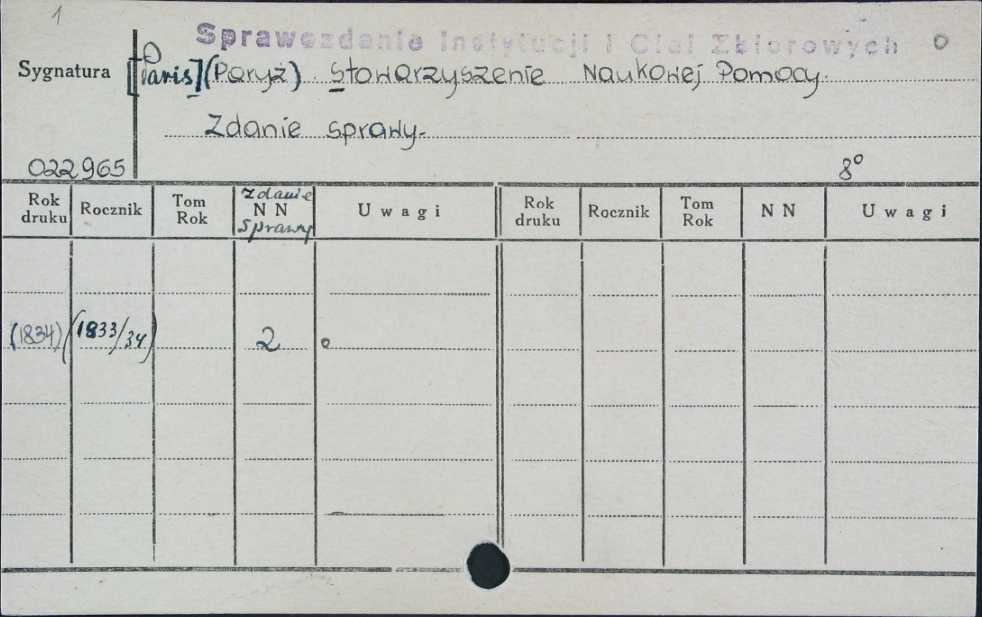 1
Sprawozdanie Instytucji i Ciał Zbiorowych
Sygnatura [Paris] (Paryż). Stowarzyszenie Naukowej Pomocy.
Zdanie sprawy.
022965 8°
Rok druku Rocznik Tom Rok Zdanie NN sprawy Uwagi Rok druku Rocznik Tom Rok NN Uwagi
(1834) (1833/34) 2